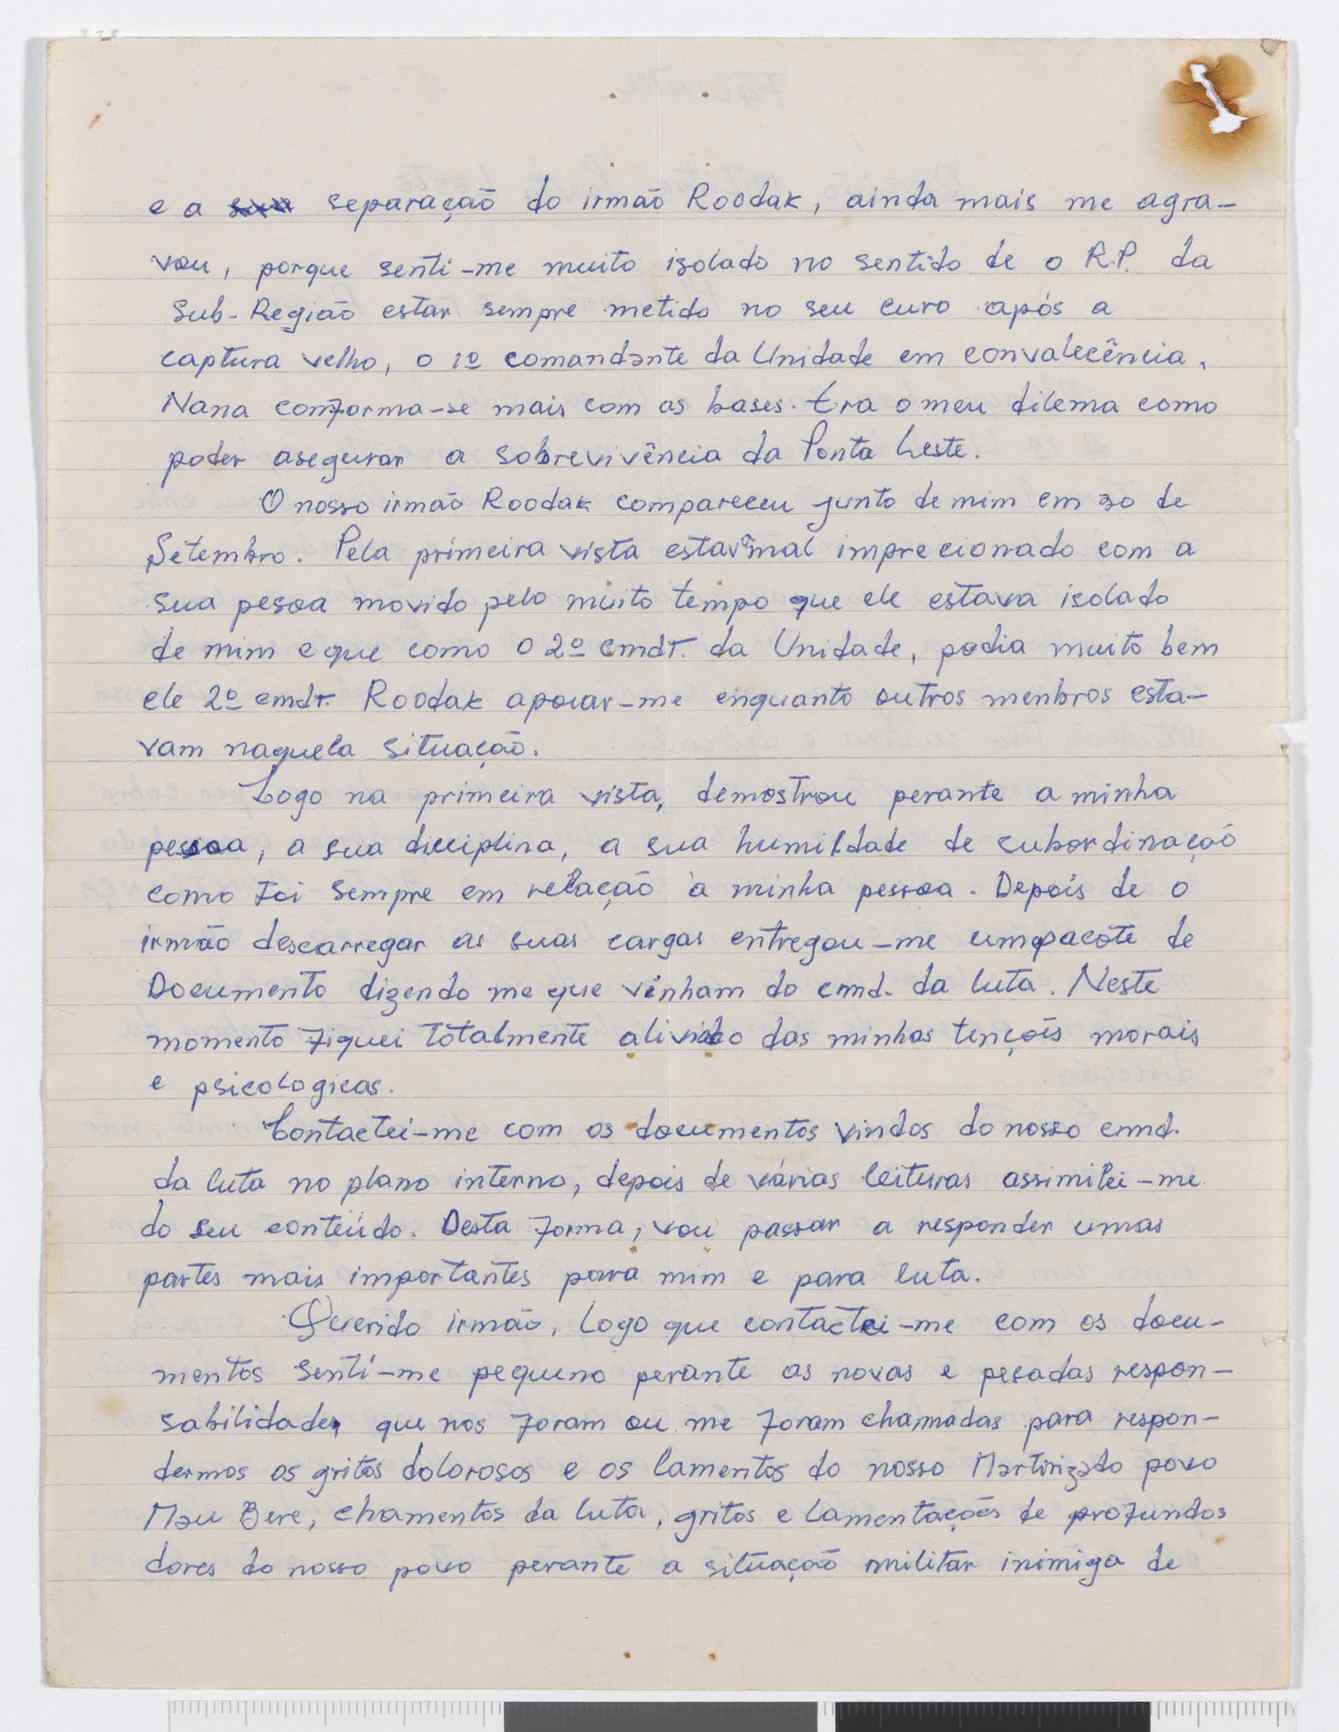 e a sua separação do irmão Roodak, ainda mais me agra-
vou, porque senti-me muito isolado no sentido de o R.P. da
Sub-Região estar sempre metido no seu curo após a
captura velho, o 1º comandante da Unidade em convalecência.
Nana comforma-se mais com as bases. Era o meu dilema como
poder asegurar a sobrevivência da Ponta Leste.
O nosso irmão Roodak compareceu junto de mim em 30 de
Setembro. Pela primeira vista estava mal imprecionado com a
sua pesoa movido pelo muito tempo que ele estava isolado
de mim e que como o 2º cmdt. da Unidade, podia muito bem
ele 2º cmdt. Roodak apoiar-me enquanto outros menbros esta-
vam naquela situação.
Logo na primeira vista, demostrou perante a minha
pessoa, a sua disciplina, a sua humildade de subordinação
como foi sempre em relação à minha pessoa. Depois de o
irmão descarregar as suas cargas entregou-me um pacote de
Documento dizendo me que vinham do cmd. da luta. Neste
momento fiquei totalmente aliviado das minhas tenções morais
e psicologicas.
Contactei-me com os documentos vindos do nosso cmd.
da luta no plano interno, depois de várias leituras assimilei-me
do seu conteúdo. Desta forma, vou passar a responder umas
partes mais importantes para mim e para luta.
Querido irmão, logo que contactei-me com os docu-
mentos senti-me pequeno perante as novas e pesadas respon-
sabilidades que nos foram ou me foram chamadas para respon-
dermos os gritos dolorosos e os lamentos do nosso Martirizado povo
Mau Bere, chamentos da luta, gritos e lamentações de profundos
dores do nosso povo perante a situação militar inimiga de